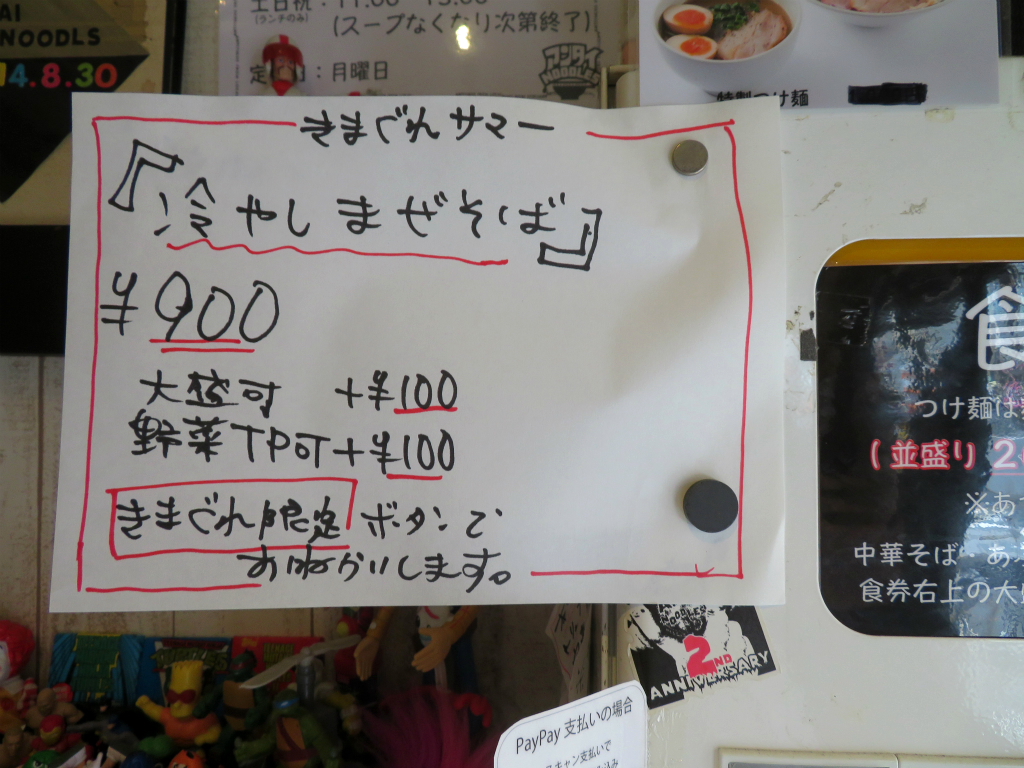 AI
NOODLS
14.8.30
土日祝：11:00
(ランチのみ)
(スープなくなり次第終了)
：月曜日
NOODLES
特製つけ麺
きまぐれサマー
『冷やしまぜそば』
¥900
大盛可 +¥100
野菜TP可 +¥100
きまぐれ限定 ボタンで
おねがいします。
食
つけ麺は
(並盛り 2
※あ
中華そば・あ
食券右上の大
2ND
ANNIVERSARY
PayPay 支払いの場合
キャン支払いで